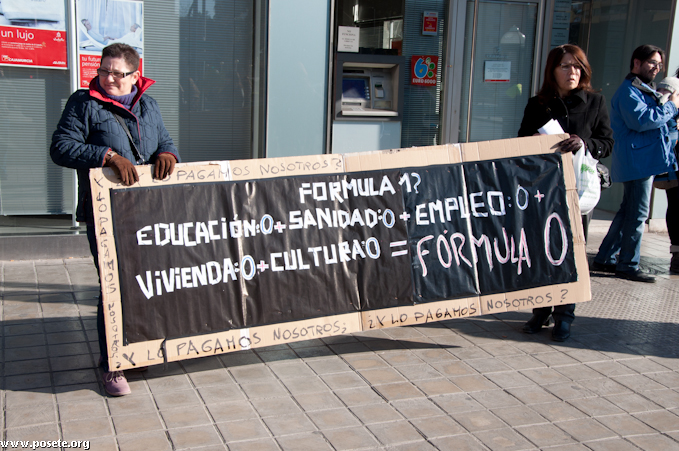 un lujo
tu futura
pensión
¿X LO PAGAMOS NOSOTROS?
FORMULA 1?
EDUCACIÓN:0+SANIDAD:0+EMPLEO:0+
VIVIENDA:0+CULTURA:0=FÓRMULA 0
X LO PAGAMOS NOSOTROS?
X LO PAGAMOS NOSOTROS¿ ¿X LO PAGAMOS NOSOTROS ?
www.posete.org